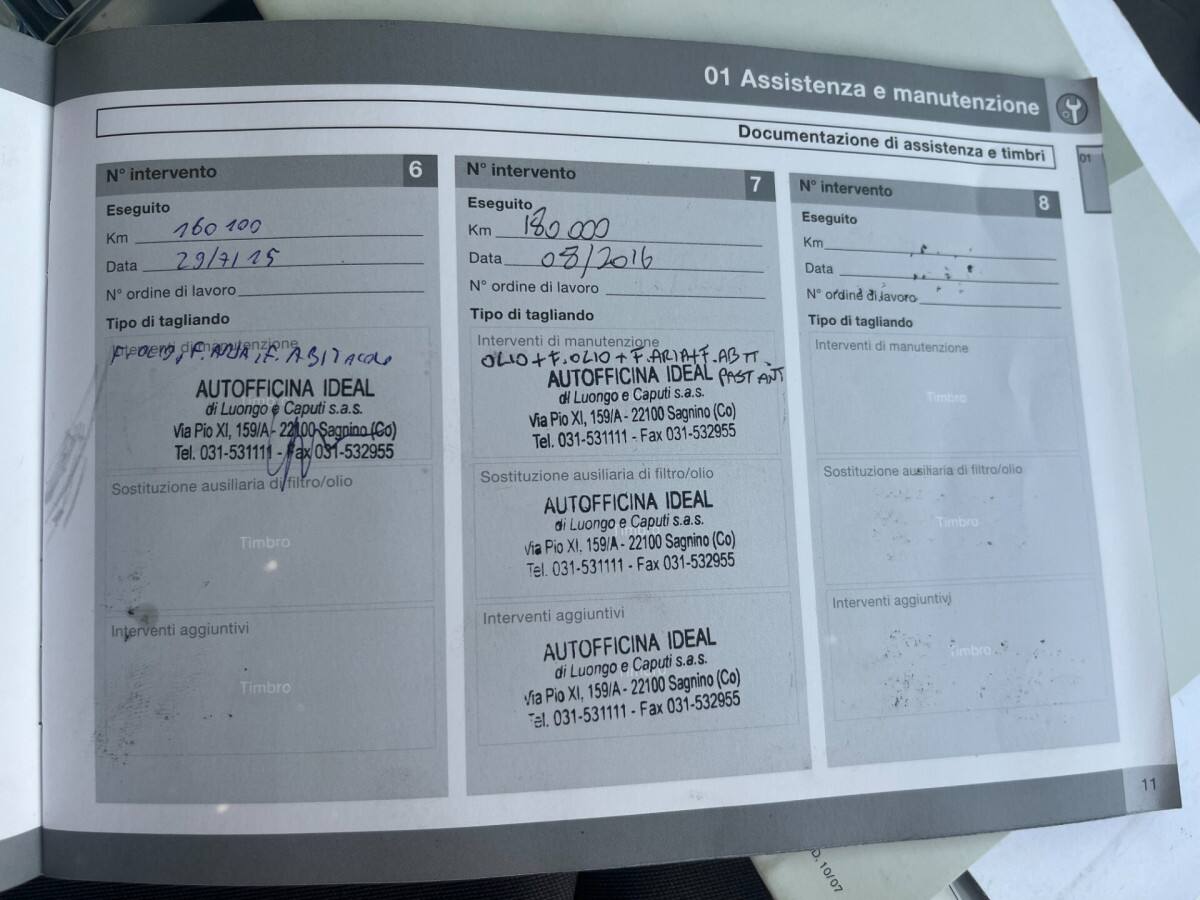 01 Assistenza e manutenzione
Documentazione di assistenza e timbri
01
N° intervento 6
Eseguito
Km 160 100
Data 29/7/15
N° ordine di lavoro
Tipo di tagliando
Interventi di manutenzione
F. OLIO, F. ARIA, F. ABITACOLO
Timbro
AUTOFFICINA IDEAL
di Luongo e Caputi s.a.s.
Via Pio XI, 159/A - 22100 Sagnino (Co)
Tel. 031-531111 - Fax 031-532955
Sostituzione ausiliaria di filtro/olio
Timbro
Interventi aggiuntivi
Timbro
N° intervento 7
Eseguito
Km 180 000
Data 08/2016
N° ordine di lavoro
Tipo di tagliando
Interventi di manutenzione
OLIO + F. OLIO + F. ARIA + F. ABIT.
PAST ANT
AUTOFFICINA IDEAL
di Luongo e Caputi s.a.s.
Via Pio XI, 159/A - 22100 Sagnino (Co)
Tel. 031-531111 - Fax 031-532955
Sostituzione ausiliaria di filtro/olio
AUTOFFICINA IDEAL
di Luongo e Caputi s.a.s.
Via Pio XI, 159/A - 22100 Sagnino (Co)
Tel. 031-531111 - Fax 031-532955
Interventi aggiuntivi
AUTOFFICINA IDEAL
di Luongo e Caputi s.a.s.
Via Pio XI, 159/A - 22100 Sagnino (Co)
Tel. 031-531111 - Fax 031-532955
N° intervento 8
Eseguito
Km
Data
N° ordine di lavoro
Tipo di tagliando
Interventi di manutenzione
Timbro
Sostituzione ausiliaria di filtro/olio
Timbro
Interventi aggiuntivi
Timbro
11
D, 10/07